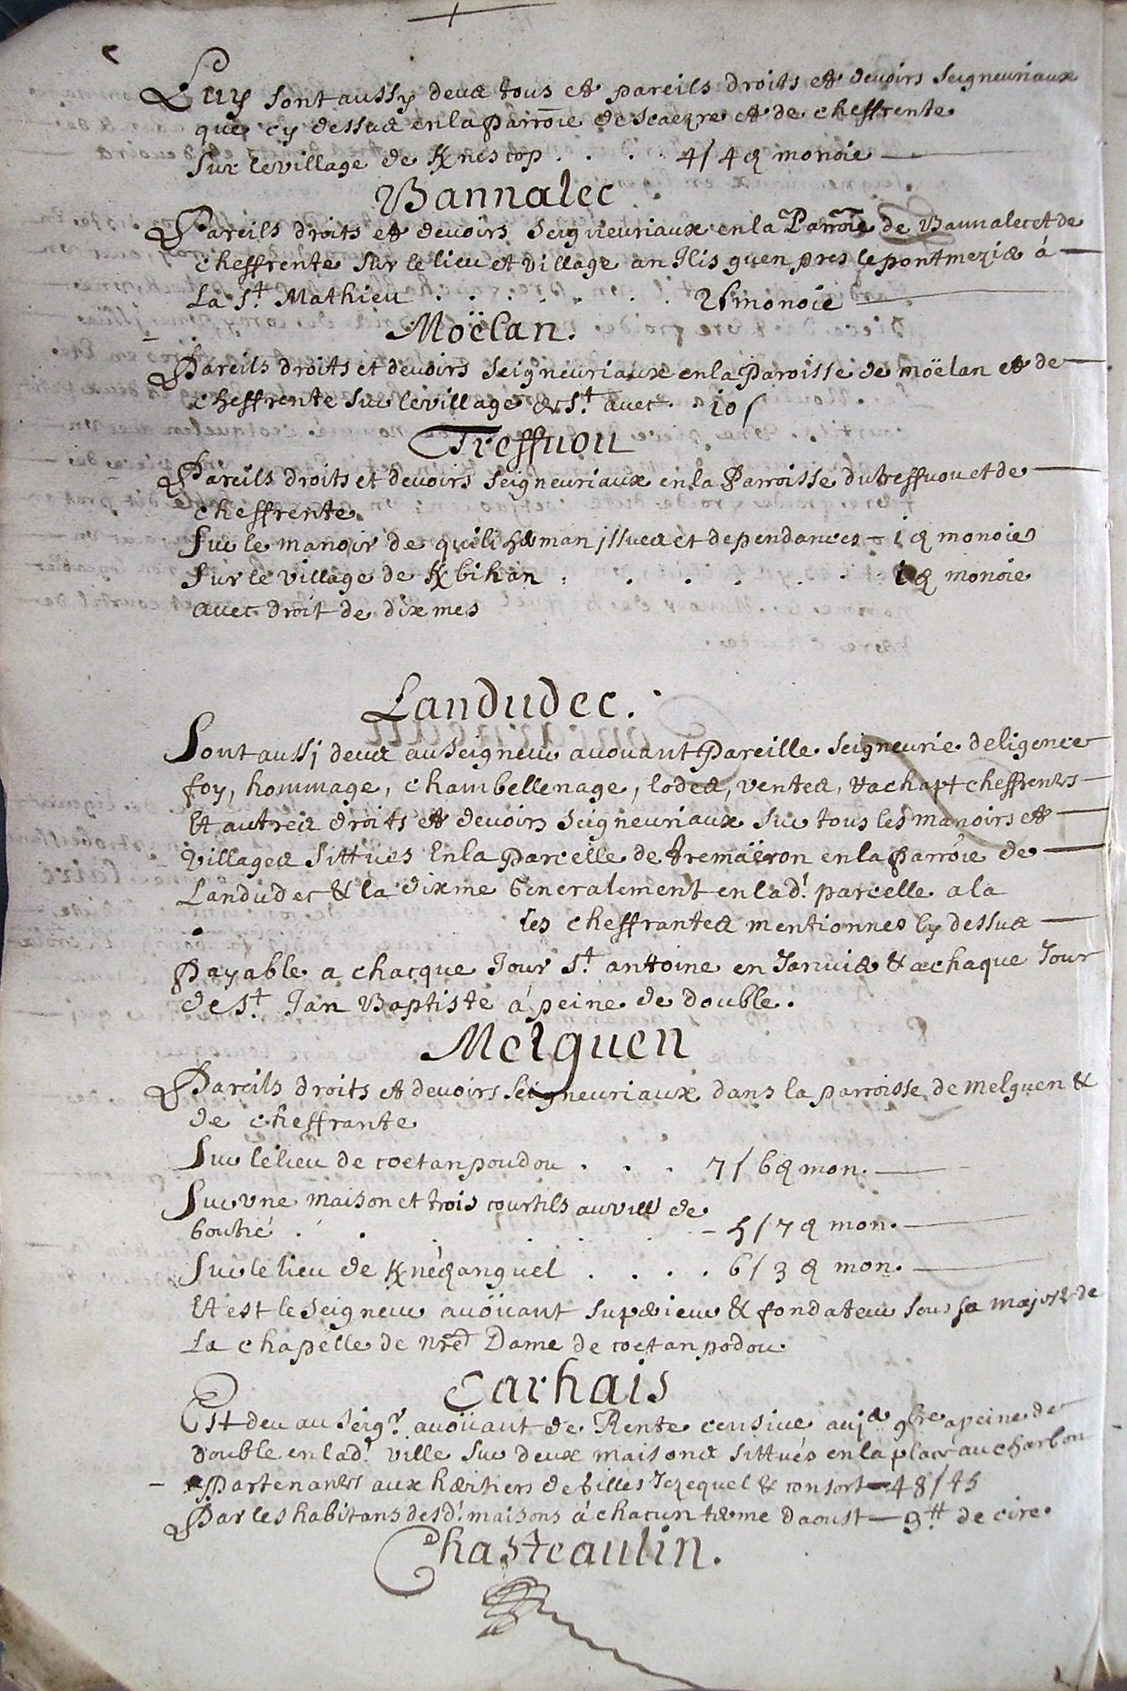 Luy sont aussy deus tous et pareils droits et devoirs seigneuriaux
que cy dessus en la parroie de scaezre et de cheffrente
sur le village de K/nescop . . . . 4 s 4 d monoie
Bannalec
Pareils droits et devoirs seigneuriaux en la Parroie de Bannalec et de
cheffrente sur le lieu et village an Ilis guen pres le pont à
La St Mathieu . . . . . . . 2 s monoie
Moëlan.
Pareils droits et devoirs seigneuriaux en la Paroisse de moëlan et de
cheffrente sur le village de St avec . 10 s
Treffuou
Pareils droits et devoirs seigneuriaux en la Parroisse du treffuou et de
cheffrente.
Sur le manoir de issues et dependances - 1 d monoie
Sur le village de K/bihan : . . . . . . 1 d monoie
avec droit de dixmes
Landudec.
Sont aussi deus au Seigneur avouant Pareille seigneurie de ligence
foy, hommage, chambellenage, lodes, ventes, rachapt cheffrentes
Et autres droits et devoirs seigneuriaux sur tous les manoirs et
villages sittues En la parcelle de en la parroie de
Landudec & la dixme Generalement en lad. parcelle a la
les cheffrantes mentionnes cy dessus
Payable a chacque Jour St antoine en Janvier & a chaque Jour
de St Jan Baptiste à peine de double.
Melguen
Pareils droits et devoirs seigneuriaux dans la parroisse de melguen &
de cheffrante
Sur le lieu de coetanpoudou . . . 7 s 6 d mon.
Sur une maison et trois courtils au vill de
. . . . . . - 5 s 7 d mon.
Sur le lieu de . . . . 6 s 3 d mon.
Et est le Seigneur avoüant superieur & fondateur sous sa majesté de
La chapelle de nre Dame de coetanpodou.
Carhais
Est deu au Seigr. avoüant de Rente censive au 9bre a peine de
double en lad. ville sur deux maisons sittués en la place au charbon
appartenantes aux heritiers de Gilles Jezequel & consort - 48 s 4 d
Par les habitans desd. maisons à chacun terme daoust - 9 tt de cire.
Chasteaulin.